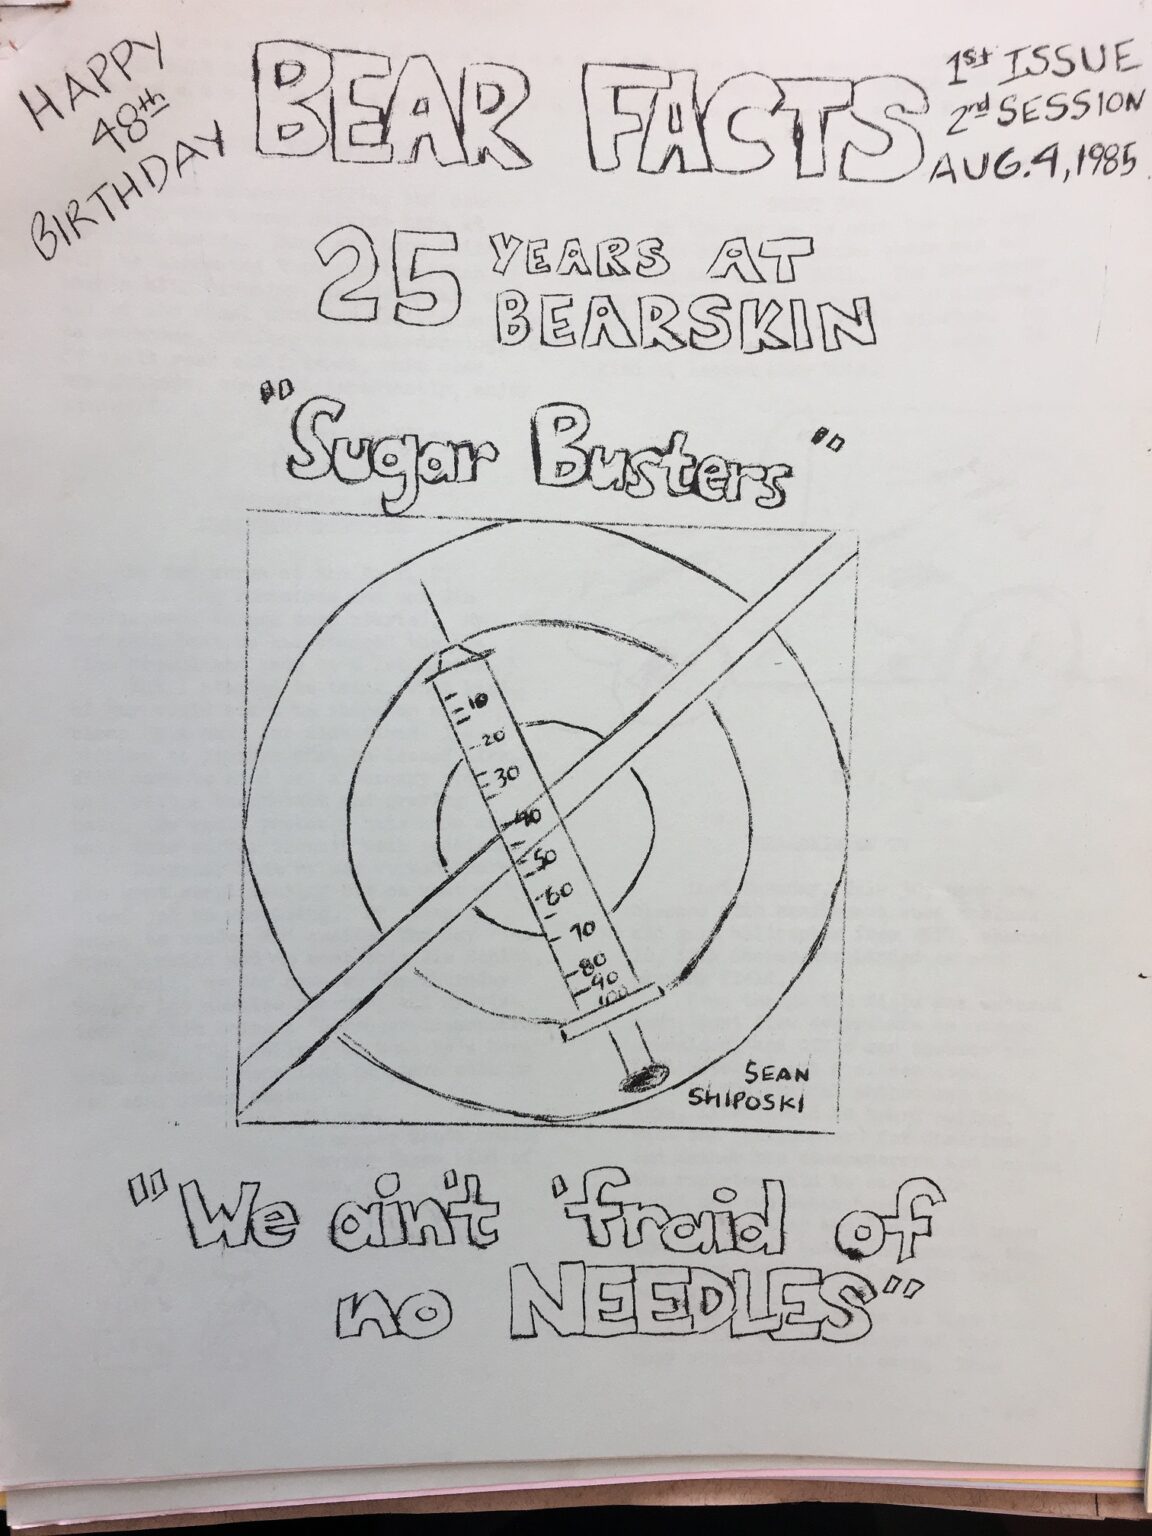 HAPPY
48th
BIRTHDAY
BEAR FACTS
1st ISSUE
2nd SESSION
AUG. 4, 1985
25 YEARS AT
BEARSKIN
"Sugar Busters"
10
20
30
40
50
60
70
80
90
100
SEAN
SHIPOSKI
"We ain't 'fraid of
no NEEDLES"